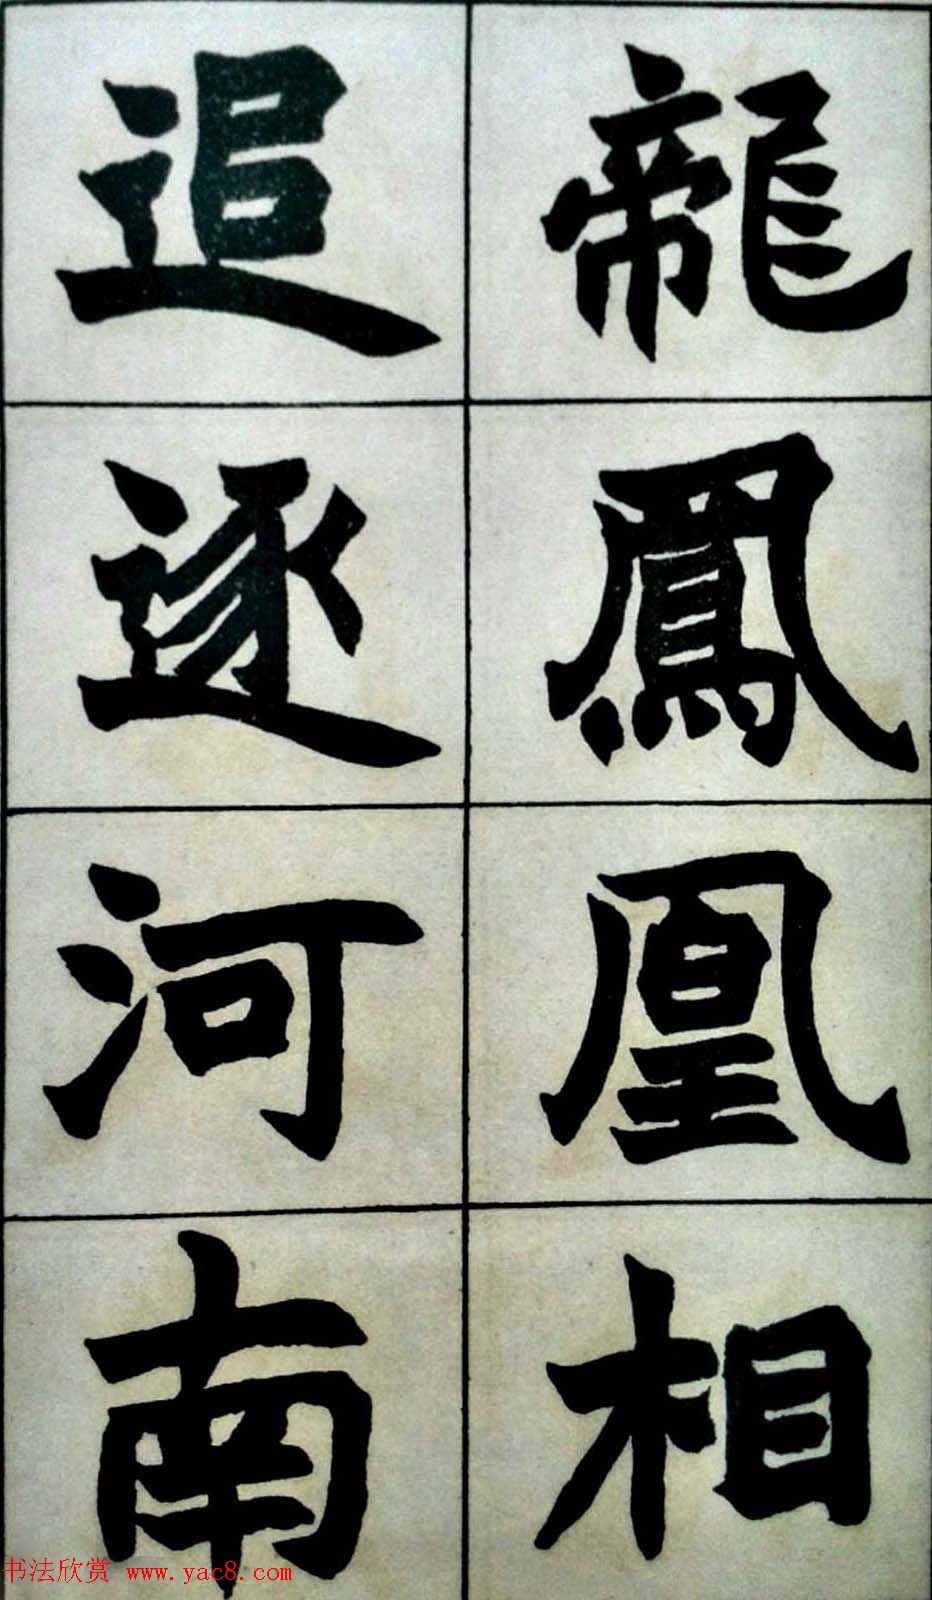 龍鳳凰相
追逐河南
书法欣赏 www.yac8.com